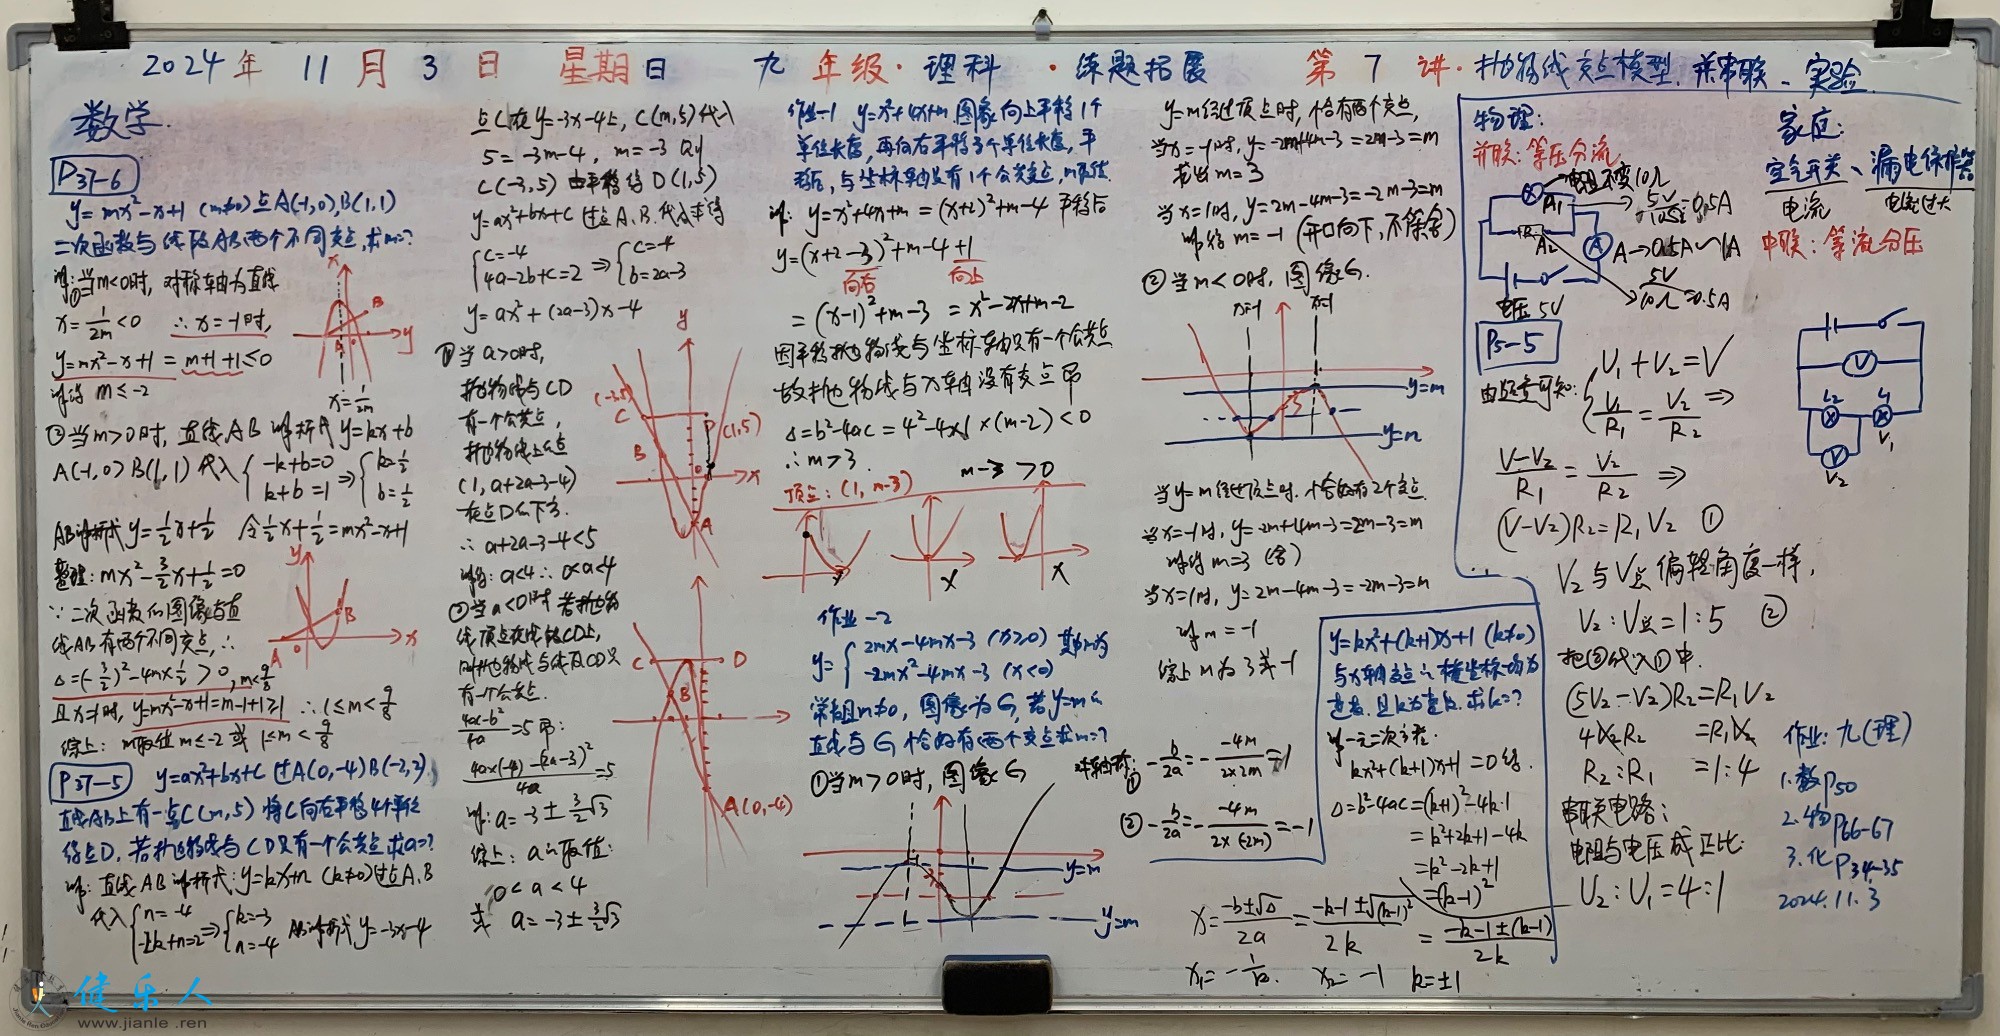 2024年 11月 3日 星期日 九年级·理科·练题拓展 第7讲·抛物线交点模型.并串联、实验
数学
P37-6
y=mx²-x+1 (m≠0) 点A(-1,0),B(1,1)
二次函数与线段AB两个不同交点,求m=?
解:①当m<0时, 对称轴为直线
x=1/2m<0 ∴x=-1时,
y=mx²-x+1=m+1+1≤0
解得 m≤-2
②当m>0时, 直线AB解析式y=kx+b
A(-1,0) B(1,1)代入{-k+b=0 k+b=1⇒{k=1/2 b=1/2
AB解析式y=1/2x+1/2 令1/2x+1/2=mx²-x+1
整理:mx²-3/2x+1/2=0
∵二次函数的图像与直
线AB有两个不同交点,∴
Δ=(-3/2)²-4m×1/2>0,m<9/8
且x=1时, y=mx²-x+1=m-1+1≥1 ∴1≤m<9/8
综上: m取值m≤-2或1≤m<9/8
P37-5 y=ax²+bx+c过A(0,-4)B(-2,2).
直线AB上有一点C(m,5)将C向右平移4个单位
得点D, 若抛物线与CD只有一个公共点求a=?
解: 直线AB解析式:y=kx+n (k≠0)过点A、B
代入{n=-4 -2k+n=2⇒{k=-3 n=-4 AB解析式y=-3x-4
x
y
A
B
x=1/2m
y
x
A
B
点C在y=-3x-4上, C(m,5)代入
5=-3m-4, m=-3 则
C(-3,5) 由平移得D(1,5)
y=ax²+bx+c过点A、B.代入求得
{c=-4 4a-2b+c=2⇒{c=-4 b=2a-3
y=ax²+(2a-3)x-4
①当a>0时,
抛物线与CD
有一个公共点,
抛物线上的点
(1,a+2a-3-4)
在点D的下方.
∴a+2a-3-4<5
解得:a<4∴0<a<4
②当a<0时 若抛物
线顶点在线段CD上,
则抛物线与线段CD只
有一个公共点.
4ac-b²/4a=5即:
4a×(-4)-(2a-3)²/4a=5
解:a=-3±3/2√3
综上: a的取值:
0<a<4
或 a=-3±3/2√3
y
(-3,5)
C
D
(1,5)
B
x
A
C
D
B
A(0,-4)
作业-1 y=x²+4x+m图象向上平移1个
单位长度,再向右平移3个单位长度,平
移后,与坐标轴只有1个公共点,m取值
解: y=x²+4x+m=(x+2)²+m-4平移后
y=(x+2-3)²+m-4+1
向右 向上
=(x-1)²+m-3=x²-2x+m-2
因平移抛物线与坐标轴只有一个公共点
故抛物线与x轴没有交点即
Δ=b²-4ac=4²-4×1×(m-2)<0
∴m>3.
m-3>0
顶点:(1,m-3)
X
X
作业-2
y={2mx-4mx-3 (x≥0) -2mx²-4mx-3 (x<0) 其中m为
常数且m≠0, 图像为G, 若y=m的
直线与G恰好有两个交点求m=?
①当m>0时,图像G
y=m
y=m
y=m经过顶点时,恰有两个交点,
当x=-1时,y=-2m+4m-3=2m-3=m
求出m=3
当x=1时,y=2m-4m-3=-2m-3=m
解得m=-1(开口向下,不符舍)
②当m<0时, 图像G.
x=-1
x=1
y=m
y=n
当y=m经过顶点时.恰好有2个交点.
当x=-1时,y=-2m+4m-3=2m-3=m
解得m=3(舍)
当x=1时, y=2m-4m-3=-2m-3=m
解m=-1
综上m为3或-1
对称轴:①-b/2a=--4m/2×2m=1
②-b/2a=--4m/2×(-2m)=-1
y=kx²+(k+1)x+1 (k≠0)
与x轴交点的横坐标均为
整数.且k为整数.求k=?
解一元二次方程.
kx²+(k+1)x+1=0得.
Δ=b²-4ac=(k+1)²-4k·1
=k²+2k+1-4k
=k²-2k+1
=(k-1)²
x=-b±√Δ/2a=-k-1±√(k-1)²/2k=-k-1±(k-1)/2k
x₁=-1/k. x₂=-1 k=±1
物理:
并联:等压分流
电阻不变10Ω
A₁
5V/10Ω=0.5A
R
A₂
A
A→0.5A~1A
5V/10Ω=0.5A
电压5V
P5-5
由题意可知:{V₁+V₂=V V₁/R₁=V₂/R₂⇒
V-V₂/R₁=V₂/R₂⇒
(V-V₂)R₂=R₁V₂ ①
V₂与V总偏转角度一样,
V₂:V总=1:5 ②
把②代入①中.
(5V₂-V₂)R₂=R₁V₂
4V₂R₂=R₁V₂
R₂:R₁=1:4
串联电路:
电阻与电压成正比
U₂:U₁=4:1
家庭:
空气开关、漏电保护器
电流 电流过大
串联:等流分压
V
L₂
L₁
V₁
V
V₂
作业:九(理)
1.数P50
2.物P66-67
3.化P34-35
2024.11.3
健乐人
www.jianle.ren